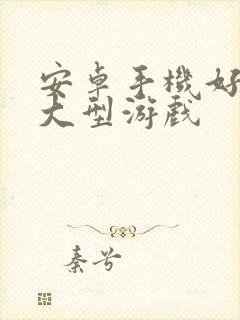 安卓手機好
大型游戲
秦兮